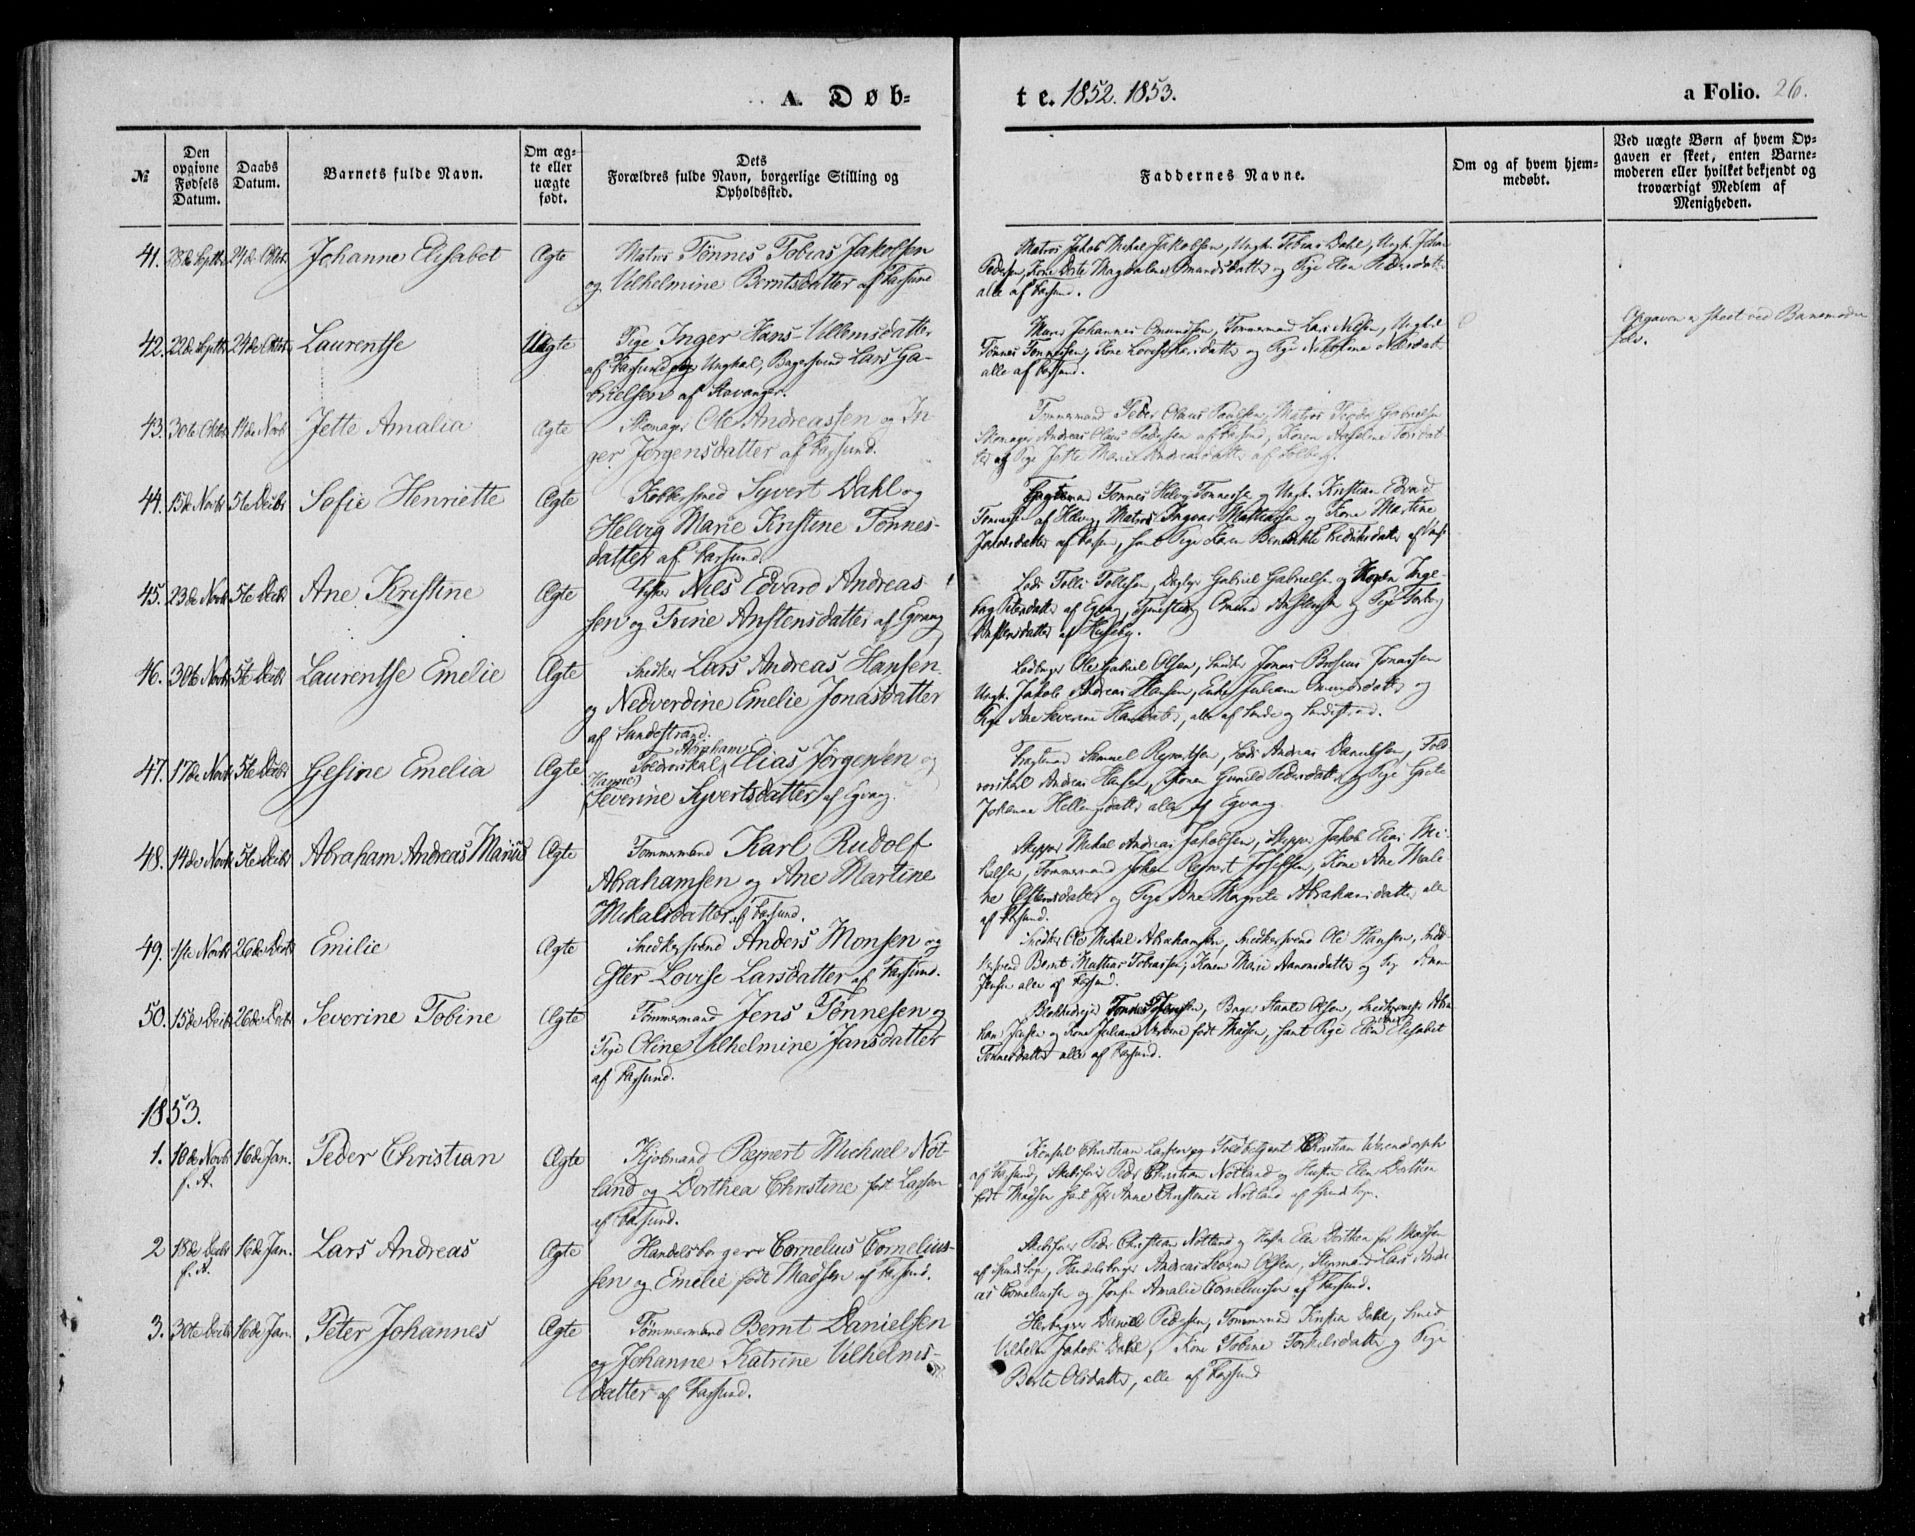 A. Døb-
te. 1852. 1853.
a Folio. 26.
№
Den opgivne Fødsels Datum.
Daabs Datum.
Barnets fulde Navn.
Om ægte eller uægte født.
Dets Forældres fulde Navn, borgerlige Stilling og Opholdssted.
Faddernes Navne.
Om og af hvem hjemmedøbt.
Ved uægte Børn af hvem Opgaven er skeet, enten Barnemoderen eller hvilket bekjendt og troværdigt Medlem af Menigheden.
41. 28de Septbr 24de Oktbr Johanne Elisabet Ægte
Matros Tønnes Tobias Jakobsen
og Vilhelmine Berntsdatter af Farsund
Matros Jakob Mikal Jakobsen, Ungk. Tobias Dahl, Ungk. Johan
Pedersen, Kone Berte Magdalene Omundsdatter og Pige Elen Pedersdatter
alle af Farsund.
42. 22de Septbr 24de Oktbr Laurentse Uægte
Pige Inger Hans-Villemsdatter
af Farsund og Ungkal, Bagersvend Lars Ga-
brielsen af Stavanger.
Johannes Omundsen, Tømmermand Lars Nilsen, Ungkal
Tønnes Tønnessen, Kone Lovise Larsdatter og Pige
alle af Farsund.
Opgaven er skeet ved Barnemoderen
selv.
43. 30te Oktbr 14de Novb Jette Amalia Ægte
Skomager Ole Andreassen og In-
ger Jørgensdatter af Farsund.
Tømmermand Peder Olaus Paulsen, Matros Peder Gabrielsen
Skomager Andreas Olaus Pedersen af Farsund, Konen
og Pige Jette Marie Andreasdatter af
44. 15de Novbr 5te Decbr Sofie Henriette Ægte
Kobbersmed Syvert Dahl og
Helvig Marie Kristine Tønnes-
datter af Farsund.
Tønnes Helvig Tønnessen og Ungk. Kristian Edvard
Tønnessen af Matros Ingvar Mattiassen og Kone Martine
Jakobsdatter af Farsund, samt Pige Karen Benedikte Fredriksdatter af
45. 23de Novbr 5te Decbr Ane Kristine Ægte
Fisker Nils Edvard Andreas-
sen og Trine Anstensdatter af Egvaag
Lods Tolli Tollefsen, Gabriel Gabrielsen og Konen Inge-
borg af Egvaag, Omund Anstensen og Pige
Anstensdatter af Huseby.
46. 30te Novbr 5te Decbr Laurentse Emelie Ægte
Snedker Lars Andreas Hansen
og Nedverdine Emelie Jonasdatter
af Sundestrand.
Ole Gabriel Olsen, Snedker Jonas Brosius Jonassen
Ungk. Jakob Andreas Hansen, Enke Juliane Omundsdatter og
Pige Ane Severine Hansdatter, alle af Sunde og Sundestrand.
47. 17de Novbr 5te Decbr Gesine Emelia Ægte
Toldroerskal Abraham Elias Jörgensen og
Hanne
Severine Syvertsdatter af Egvaag.
Fragtmand Samuel Reiertsen, Lods Andreas Danielsen, Told-
roerskal Andreas Hansen, Konen Gunild Pedersdatter og Pige Grete
Johanne Hellemsdatter alle af Egvaag.
48. 14de Novbr 5te Decbr Abraham Andreas Marius Ægte
Tømmermand Karl Rudolf
Abrahamsen og Ane Martine
Mikalsdatter af Farsund.
Skipper Mikal Andreas Jakobsen, Skipper Jakob Elias Mi-
kalsen, Tømmermand Johan Reinert Josefsen, Kone Ane Male-
ne Østensdatter og Pige Ane Margrete Abrahamsdatter alle
af Farsund.
49. 1ste Novbr 26de Decbr Emilie Ægte
Snedkersvend Anders Monsen og
Ester Lovise Larsdatter af Farsund.
Snedker Ole Mikal Abrahamsen, Snedkersvend Ole Hansen, Sned-
kersvend Bernt Mathias Tobiassen, Konen Marie Aanonsdatter og Pige
Jensen alle af Farsund.
50. 15de Decbr 26de Decbr Severine Tobine Ægte
Tømmermand Jens Tønnesen og
Pige Oline Vilhelmine Jansdatter
af Farsund.
Blokkedreier Bager Staale Olsen, Snedkersvend
Jensen og Kone Juliane født Madsen, samt Pige Elen Elisabet
Tønnesdatter alle af Farsund.
1853.
1. 10de Novbr f. A. 16de Jan. Peder Christian Ægte
Kjøbmand Reinert Michael Not-
land og Dorthea Christine født Lassen
af Farsund.
Konsul Christian Lassen og Toldbetjent Christian Wesendorph
af Farsund, Skibsfører Peder Christian Notland og Hustru Elen Dorthea
født Madsen samt Jfr Anne Christence Notland af Spinds Sogn.
2 18de Decbr f. A. 16de Jan. Lars Andreas Ægte
Handelsborger Cornelius Cornelius-
sen og Emelie født Madsen af Farsund.
Skibsfører Peder Christian Notland og Hustru Elen Dorthea født Madsen
af Spinds Sogn, Handelsborger Andreas Severin Olsen, Styrmand Lars Andre-
as Corneliussen og Jomfru Amalie Corneliussen af Farsund.
3. 30te Decbr 16de Jan. Peter Johannes Ægte
Tømmermand Bernt Danielsen
og Johanne Katrine Vilhelms-
datter af Farsund.
Daniel Pedersen, Tømmermand Dahl, Smed
Vilhelm Jakob Dahl, Kone Tobine Torkelsdatter og Pige
Berte Olsdatter, alle af Farsund